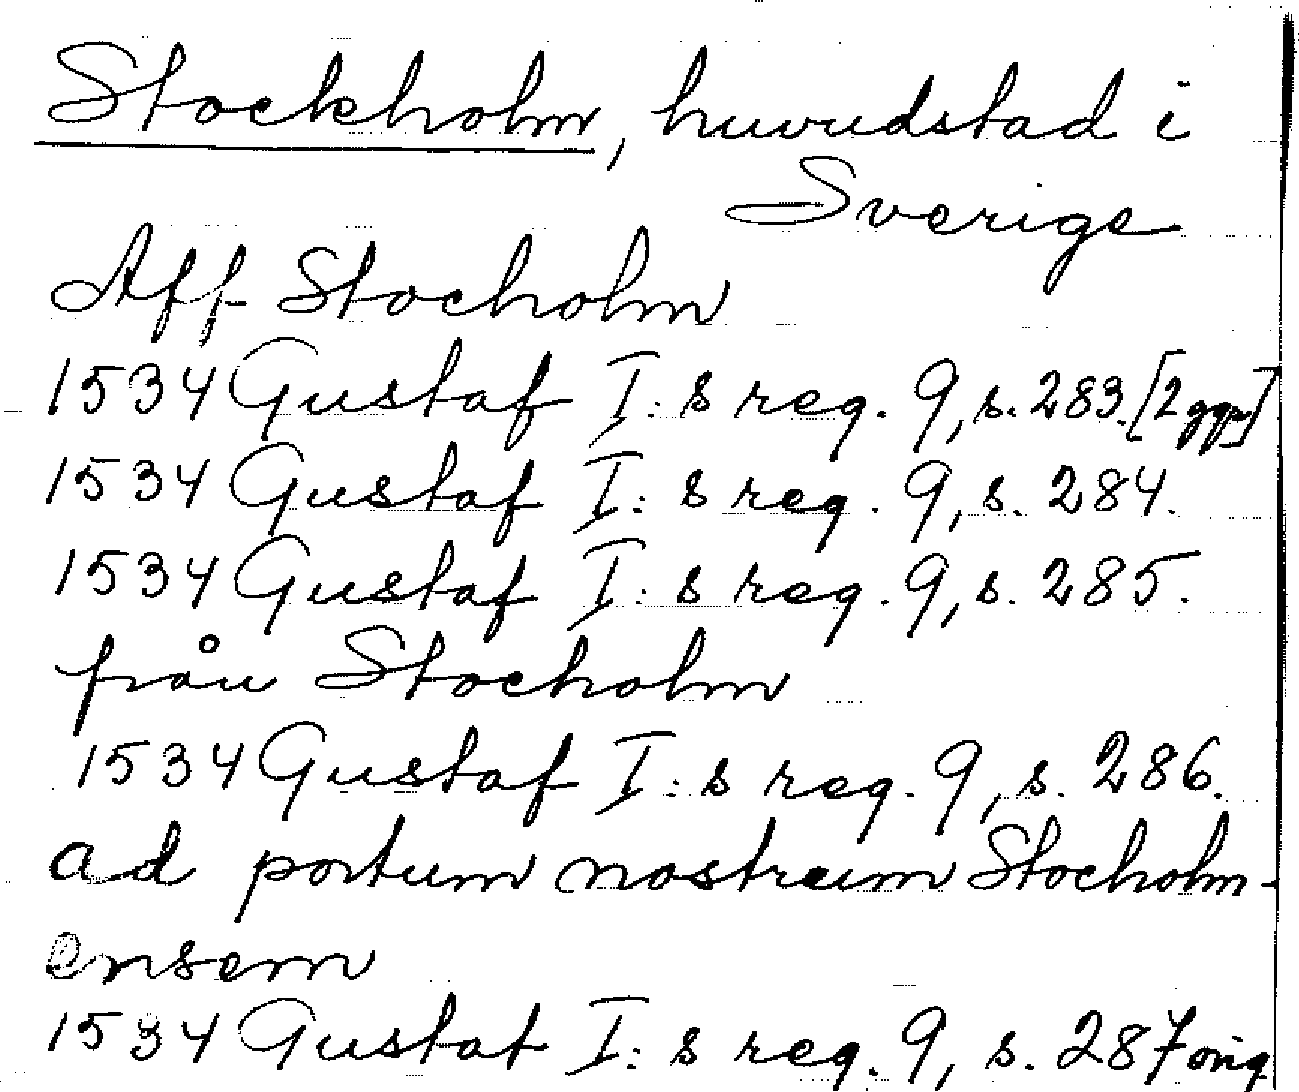 Stockholm, huvudstad i
Sverige
Aff Stocholm
1534 Gustaf I:s reg. 9, s. 283. [2 ggr]
1534 Gustaf I:s reg. 9, s. 284.
1534 Gustaf I:s reg. 9, s. 285.
från Stocholm
1534 Gustaf I:s reg. 9, s. 286.
ad portum nostrum Stocholm-
ensem
1534 Gustaf I:s reg. 9, s. 287 orig.